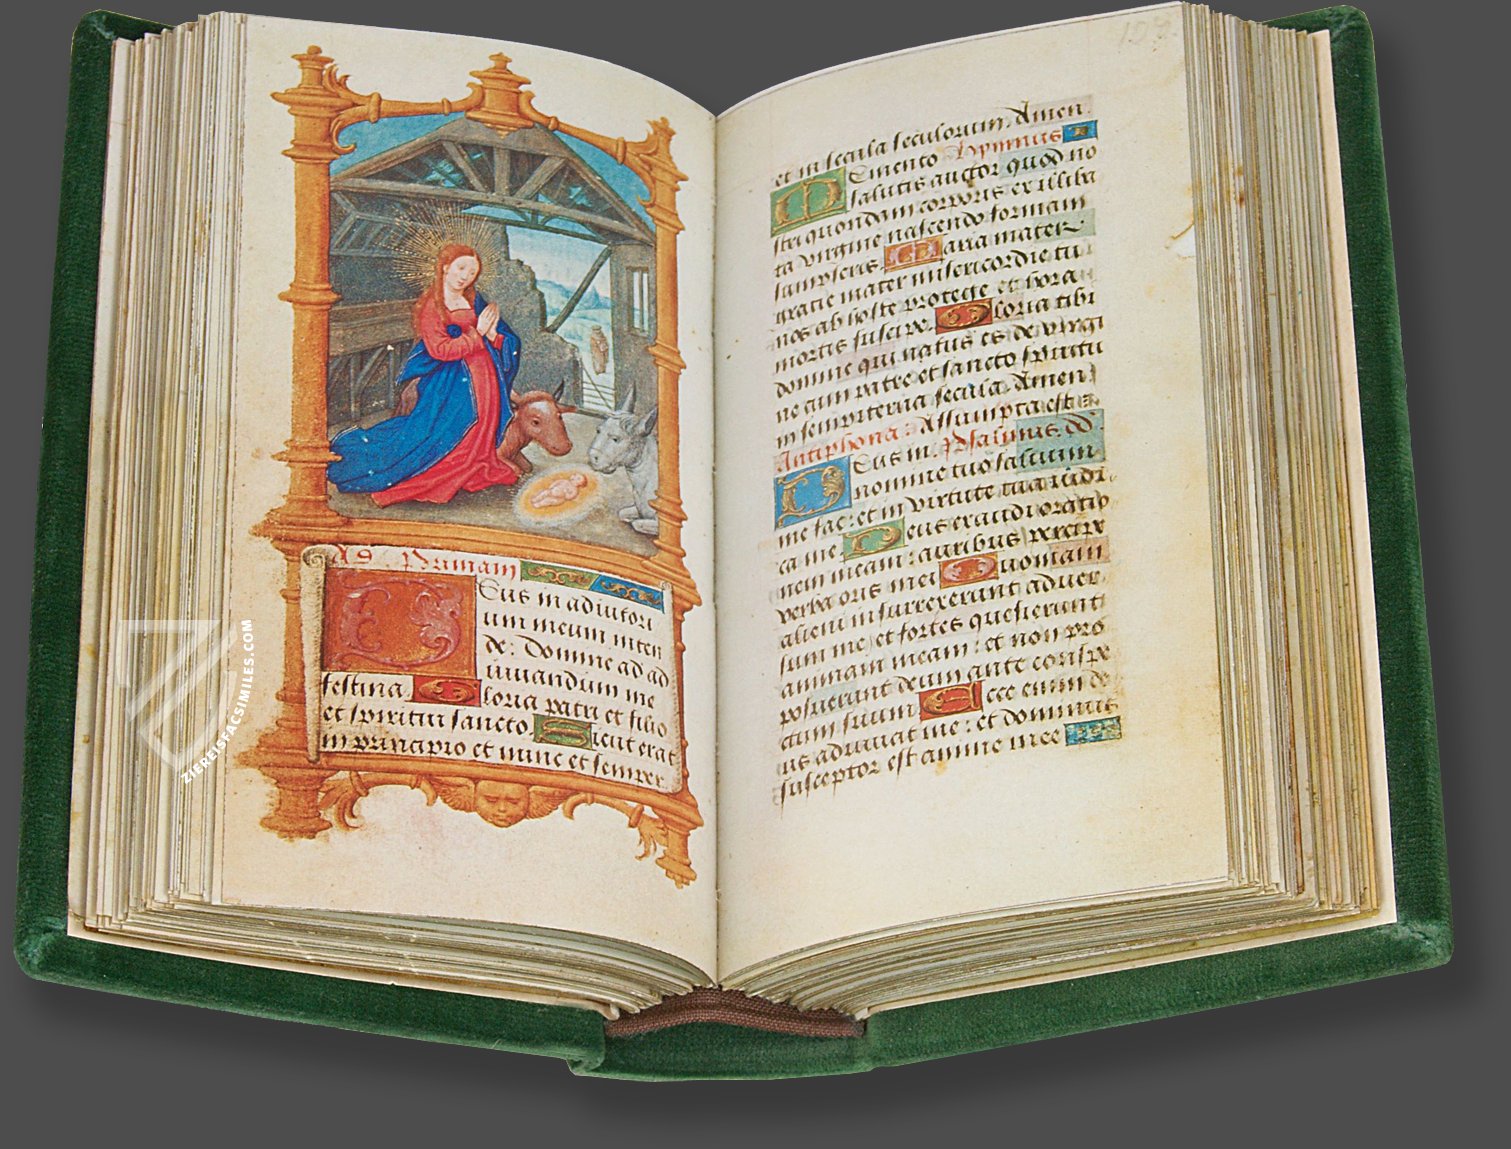 Ad Primam
Deus in adiutori
um meum inten
de: Domine ad ad
iuuandum me
festina. Gloria patri et filio
et spiritui sancto. Sicut erat
in principio et nunc et semper
et in secula seculorum. Amen.
Memento Hymnus
salutis auctor quod no
stri quondam corporis ex illiba
ta virgine nascendo formam
sumpseris. Maria mater
gratie mater misericordie tu
nos ab hoste protege et hora
mortis suscipe. Gloria tibi
domine qui natus es de virgi
ne cum patre et sancto spiritu
in sempiterna secula. Amen.
Antiphona: Assumpta est
Deus in. Psalmus. dd.
nomine tuo saluum
me fac: et in virtute tua iudi
ca me. Deus exaudi oratio
nem meam: auribus percipe
verba oris mei. Quoniam
alieni insurrexerunt aduer
sum me, et fortes quesierunt
animam meam: et non pro
posuerunt deum ante conspe
ctum suum. Ecce enim de
us adiuuat me: et dominus
susceptor est anime mee
ZIEREISFACSIMILES.COM